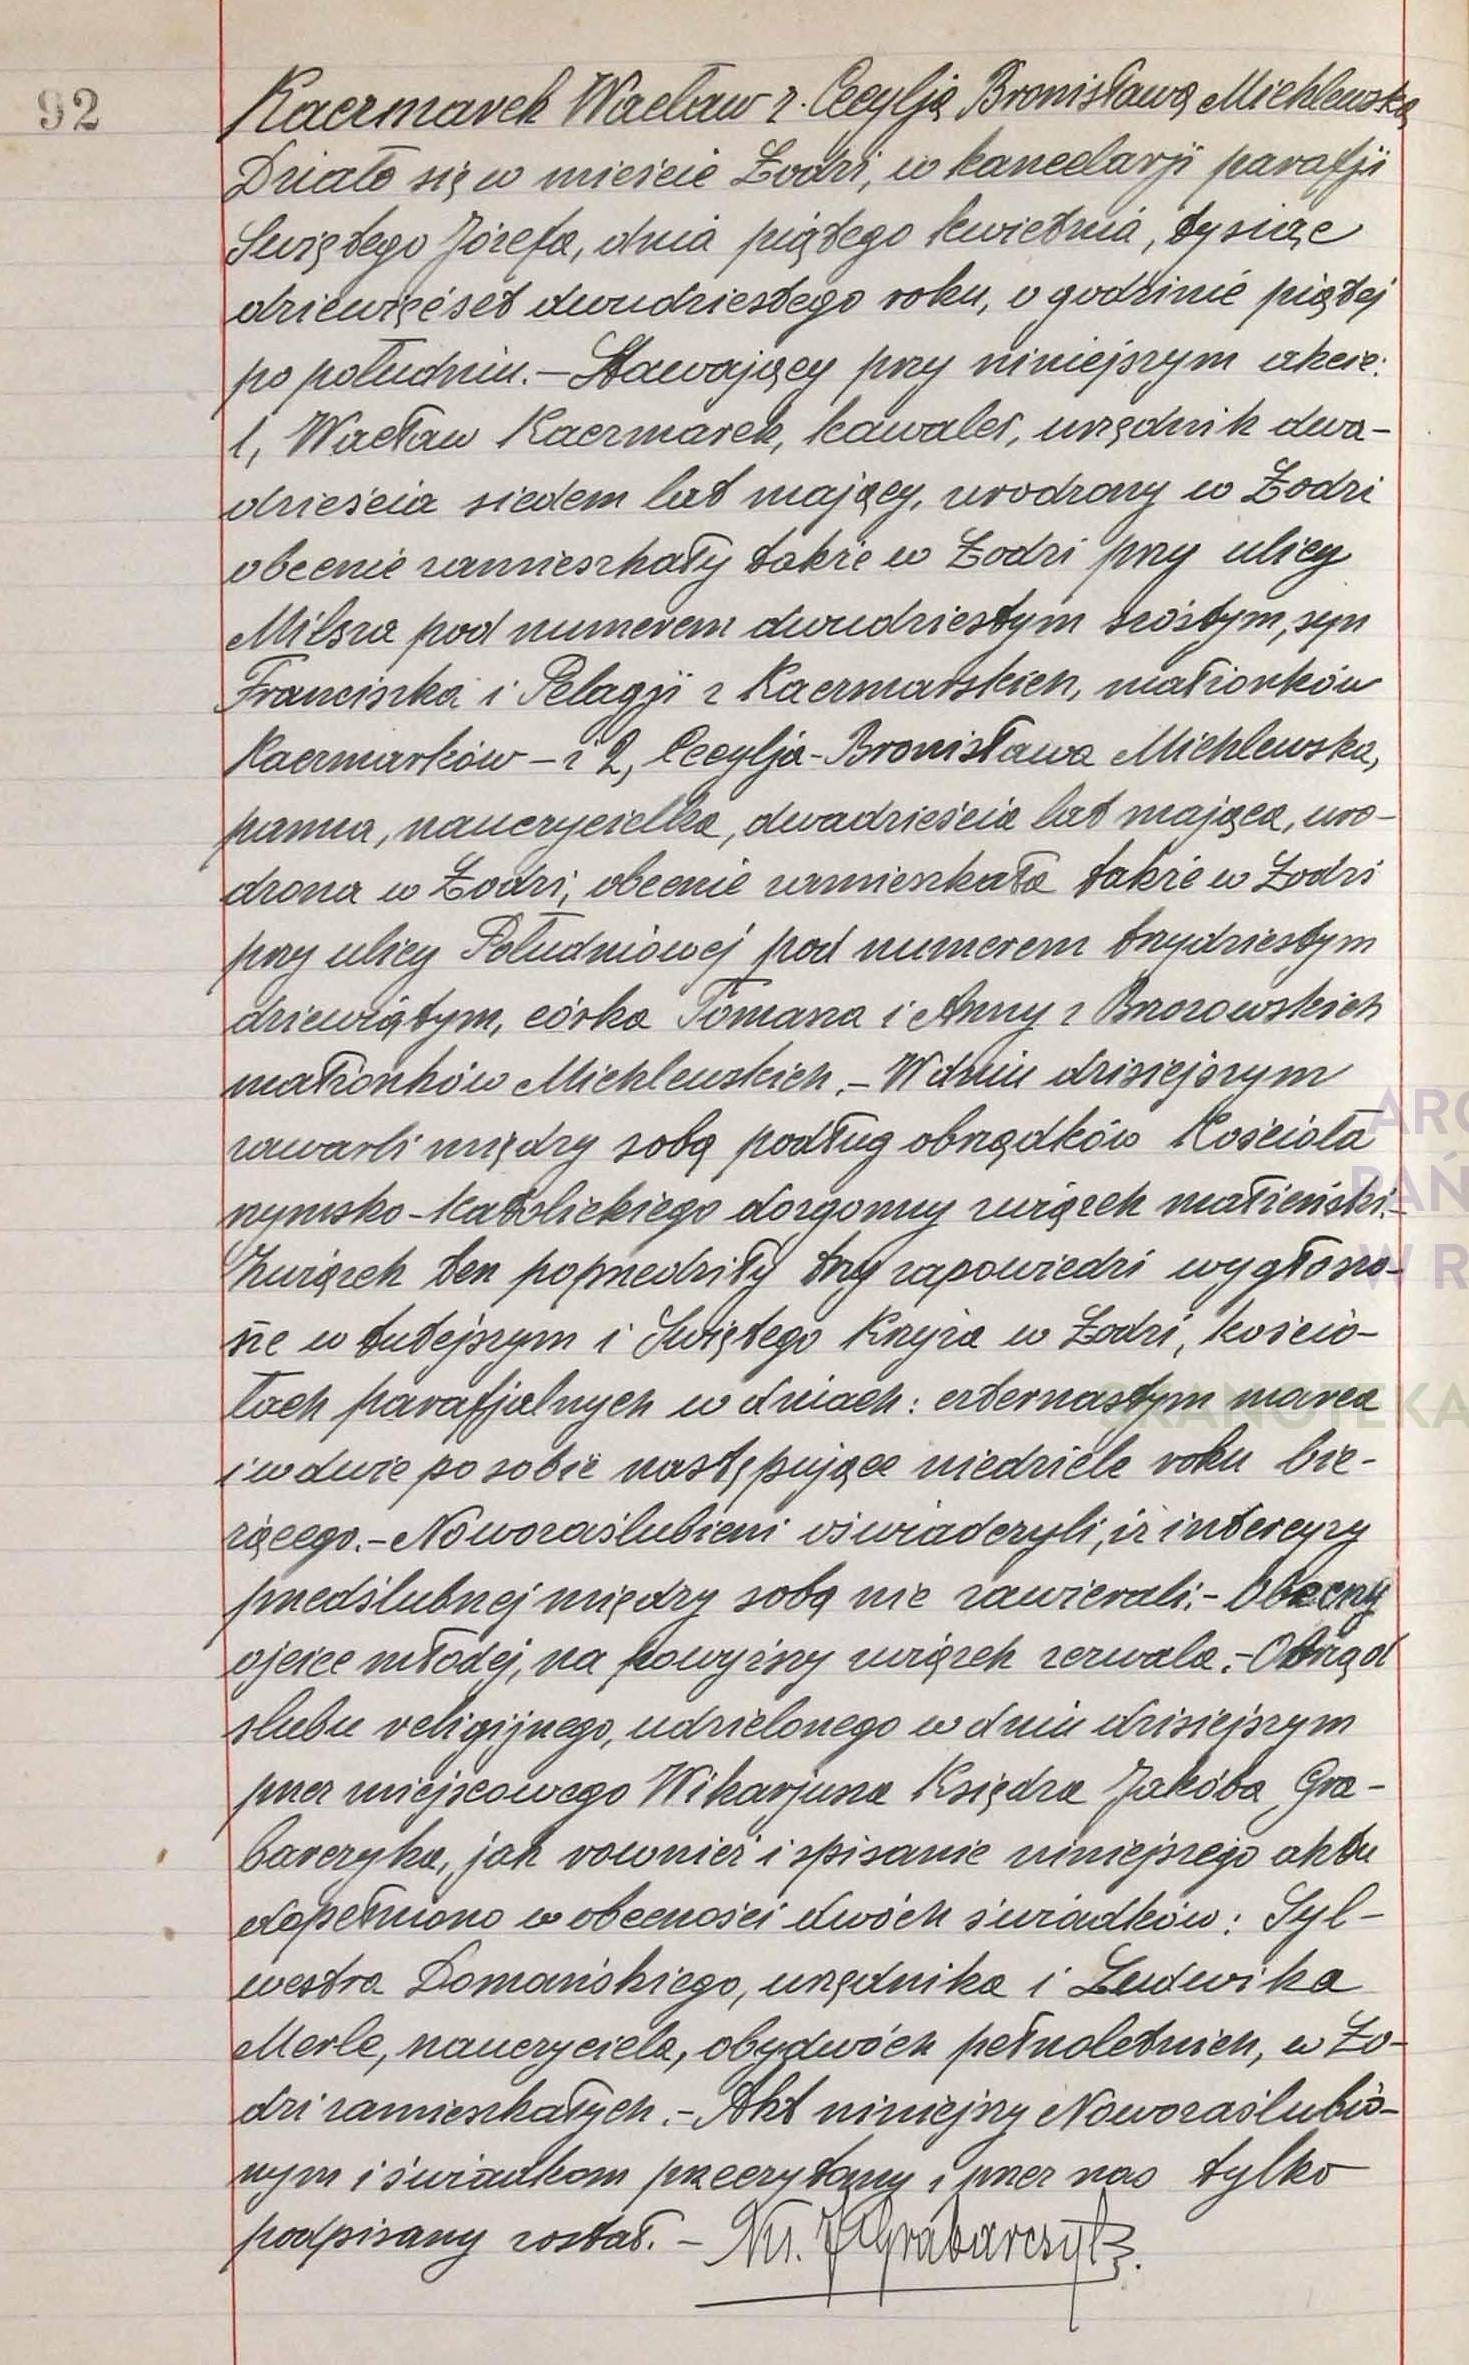 92
Kaczmarek Wacław z Cecylją Bronisławą Michlewską
Działo się w mieście Łodzi, w kancelarji parafji
Świętego Józefa, dnia piątego kwietnia, tysiąc
dziewięćset dwudziestego roku, o godzinie piątej
po południu.- Stawający przy niniejszym akcie:
1, Wacław Kaczmarek, kawaler, urzędnik dwa-
dzieścia siedem lat mający, urodzony w Łodzi
obecnie zamieszkały także w Łodzi przy ulicy
Milsza pod numerem dwudziestym szóstym, syn
Franciszka i Pelagji z Kaczmarskich, małżonków
Kaczmarków – i 2, Cecylja-Bronisława Michlewska,
panna, nauczycielka, dwadzieścia lat mająca, uro-
dzona w Łodzi, obecnie zamieszkała także w Łodzi
przy ulicy Południowej pod numerem trzydziestym
dziewiątym, córka Tomasza i Anny z Brzozowskich
małżonków Michlewskich.- W dniu dzisiejszym
zawarli między sobą podług obrządków Kościoła
rzymsko-katolickiego dozgonny związek małżeński.-
Związek ten poprzedziły trzy zapowiedzi wygłoszo-
ne w tutejszym i Świętego Krzyża w Łodzi, kościo-
łach parafjalnych w dniach: czternastym marca
i w dwie po sobie następujące niedziele roku bie-
żącego.- Nowozaślubieni oświadczyli, iż intercyzy
przedślubnej między sobą nie zawierali.- Obecny
ojciec młodej, na powyższy związek zezwala.- Obrząd
ślubu religijnego, udzielonego w dniu dzisiejszym
przez miejscowego Wikarjusza Księdza Jakóba Gra-
barczyka, jak również i spisanie niniejszego aktu
dopełniono w obecności dwóch świadków: Syl-
westra Domańskiego, urzędnika i Ludwika
Merle, nauczyciela, obydwóch pełnoletnich, w Ło-
dzi zamieszkałych.- Akt niniejszy Nowozaślubio-
nym i świadkom przeczytany i przez nas tylko
podpisany został. – Ks. J Grabarczyk.
ARC
PAŃ
W R
SKANOTEKA